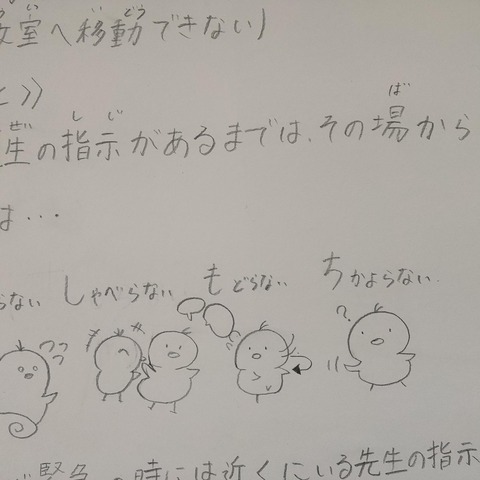 教室へ移動できない)
と》
生の指示があるまでは、その場から
は…
らない しゃべらない もどらない ちかよらない
緊急の時には近くにいる先生の指示